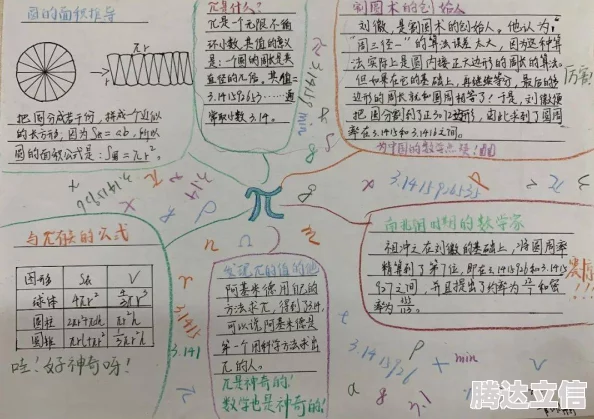 圆的面积推导
πr
r
把圆分成若干份，拼成个近似
的长方形，因为S▭=ab，所以
圆的面积公式是：S圆=πr²。
π是什么？
π是一个无限不循
环小数，其值的含义
是：一个圆的周长是其
直径的几倍，其值=
3.141592653……通
常取小数3.14。
割圆术的创始人
刘徽，是割圆术的创始人。他认为，
"周三径一"的算法误差太大，因为这种算
法实际上是圆内接正六边形的周长的算法。
但如果在它的基础上，再继续等分，最后的多
边形的周长就和圆周相等了！于是，刘徽便
把圆分割到了正3072边形，因此求到了圆周
率在3.14和3.1416之间。
厉害！
为中国的数学点赞！
π
3.14159
min
3.1415926
3.1415916535
与π有关的公式
图形 S表 V
球体 4πr² 4/3πr³
圆柱 2πr²+πdh πr²h
圆锥 πr²+πrl 1/3πr²h
哇！好神奇呀！
3.1415
3.141
发现π的值的他
阿基米德用他的
方法求π，得到了3.14，
可以说阿基米德是
第一个用科学方法求出
π的人。
π是神奇的！
数学也是神奇的！
南北朝时期的数学家
祖冲之在刘徽的基础上，将圆周率
精算到了第7位，即在3.1415926和3.1415
927之间，并且提出了约率为22/7和密
率为355/113。
3.1415926
+ min
腾达立信